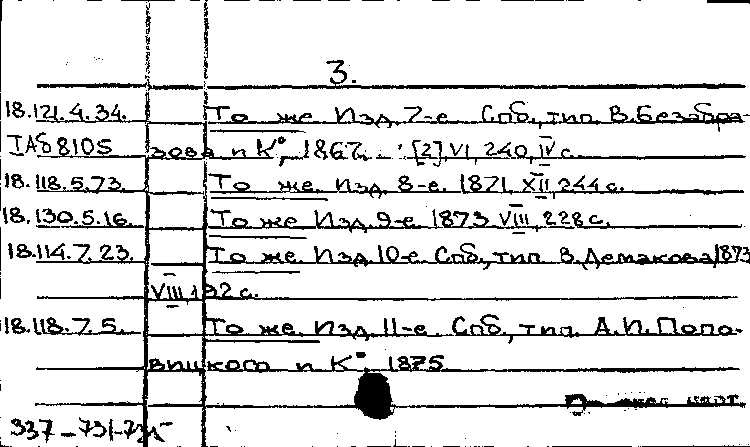 3.
18.121.4.34. То же. Изд. 7-е. Спб., тип. В. Безобра-
IАб 8105 зова и К°, 1867. [2], VI, 240, IV с.
18.118.5.73. То же. Изд. 8-е. 1871. XII, 244 с.
18.130.5.16. То же. Изд. 9-е. 1873. VIII, 228 с.
18.114.7.23. То же. Изд. 10-е. Спб., тип. В. Демакова, 1873
VIII, 192 с.
18.118.7.5. То же. Изд. 11-е. Спб., тип. А. И. Попо-
вицкого и К°, 1875